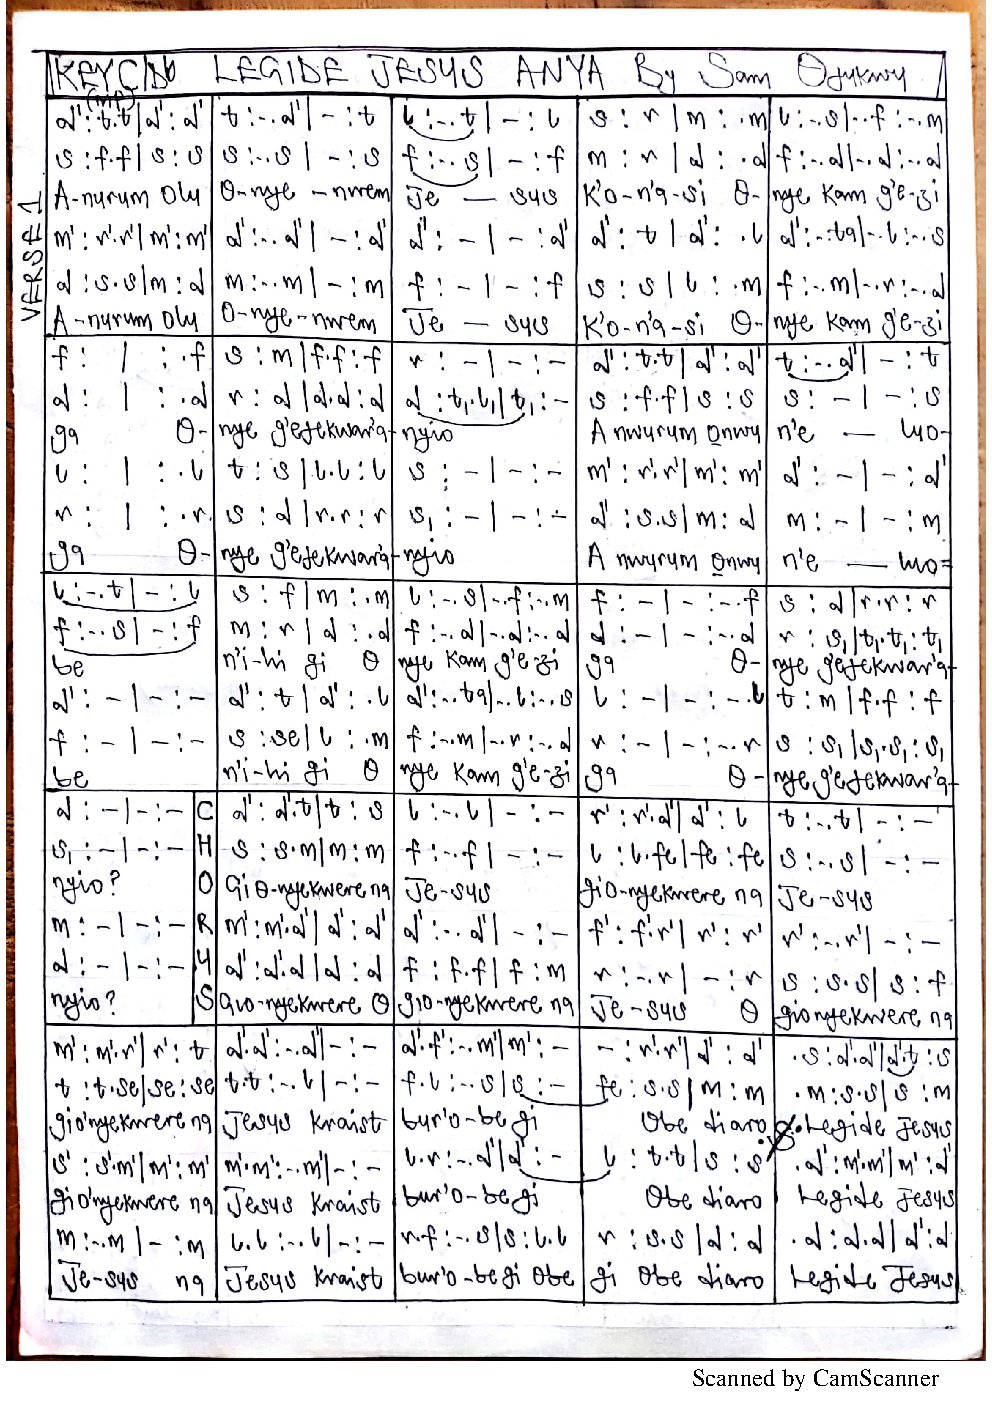 KEY C/Db LEGIDE JESUS ANYA By Sam Ojukwu
(MP)
VERSE 1
d' : t.t | d' : d' t : -. d' | - : t l : -. t | - : l s : r | m : .m l : -.s | -. f : -. m
s : f.f | s : s s : -. s | - : s f : -. s | - : f m : r | d : .d f : -. d | -. d : -. d
A-nurum Olu O-nye - nwem Je — sus K'o-n'a-si O- nye Kam g'e-zi
m' : r'.r' | m' : m' d' : -. d' | - : d' d' : - | - : d' d' : t | d' : .l d' : -. ta | -. l : -. s
d : s.s | m : d m : -. m | - : m f : - | - : f s : s | l : .m f : -. m | -. r : -. d
A-nurum Olu O-nye-nwem Je — sus K'o-n'a-si O- nye Kam g'e-zi
f : | : .f s : m | f.f : f r : - | - : - d' : t.t | d' : d' t : -. d' | - : t
d : | : .d r : d | d.d : d d : t₁.l₁ | t₁ : - s : f.f | s : s s : - | - : s
ga O- nye g'ejekwar'a- nyio A nwurum Onwu n'e — luo-
l : | : .l t : s | l.l : l s : - | - : - m' : r'.r' | m' : m' d' : - | - : d'
r : | : .r s : d | r.r : r s₁ : - | - : - d' : s.s | m : d m : - | - : m
ga O- nye g'ejekwar'a- nyio A nwurum Onwu n'e — luo=
l : -. t | - : l s : f | m : .m l : -. s | -. f : -. m f : - | - : -. f s : d | r.r : r
f : -. s | - : f m : r | d : .d f : -. d | -. d : -. d d : - | - : -. d r : s₁ | t₁.t₁ : t₁
be n'i-hi gi O nye Kam g'e-zi ga O- nye g'ejekwar'a-
d' : - | - : - d' : t | d' : .l d' : -. ta | -. l : -. s l : - | - : -. l t : m | f.f : f
f : - | - : - s : se | l : .m f : -. m | -. r : -. d r : - | - : -. r s : s₁ | s₁.s₁ : s₁
be n'i-hi gi O nye Kam g'e-zi ga O- nye g'ejekwar'a-
CHORUS
d : - | - : - d' : d'.t | t : s l : -. l | - : - r' : r'.d' | d' : l t : -. t | - : -
s₁ : - | - : - s : s.m | m : m f : -. f | - : - l : l.fe | fe : fe s : -. s | - : -
nyio? Gi O-nyekwere na Je-sus gi O-nyekwere na Je-sus
m : - | - : - m' : m'.d' | d' : d' d' : -. d' | - : - f' : f'.r' | r' : r' r' : -. r' | - : -
d : - | - : - d' : d'.d | d : d f : f.f | f : m r : -. r | - : r s : s.s | s : f
nyio? Gi O-nyekwere O gi O-nyekwere na Je-sus O gi onyekwere na
m' : m'.r' | r' : t d'.d' : -. d' | - : - d'.f' : -. m' | m' : - - : r'.r' | d' : d' .s : d'.d' | d'.t : s
t : t.se | se : se t.t : -. l | - : - f.l : -. s | s : - fe : s.s | m : m .m : s.s | s : m
gi O'nyekwere na Jesus Kraist bur'o-be gi Obe diaro Legide Jesus
s' : s'.m' | m' : m' m'.m' : -. m' | - : - l.r : -. d' | d' : - l : t.t | s : s .d' : m'.m' | m' : d'
gi O'nyekwere na Jesus Kraist bur'o-be gi Obe diaro Legide Jesus
m : -. m | - : m l.l : -. l | - : - r.f : -. s | s : l.l r : s.s | d : d .d : d.d | d' : d
Je-sus na Jesus Kraist bur'o-be gi Obe gi Obe diaro Legide Jesus
Scanned by CamScanner